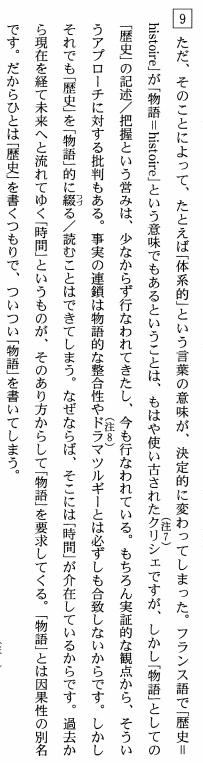 9
ただ、そのことによって、たとえば「体系的」という言葉の意味が、決定的に変わってしまった。フランス語で「歴史＝
histoire」が「物語＝histoire」という意味でもあるということは、もはや使い古されたクリシェですが、しかし「物語」としての
（注７）
「歴史」の記述／把握という営みは、少なからず行なわれてきたし、今も行なわれている。もちろん実証的な観点から、そうい
うアプローチに対する批判もある。事実の連鎖は物語的な整合性やドラマツルギーとは必ずしも合致しないからです。しかし
（注８）
それでも「歴史」を「物語」的に綴る／読むことはできてしまう。なぜならば、そこには「時間」が介在しているからです。過去か
つづ
ら現在を経て未来へと流れてゆく「時間」というものが、そのあり方からして「物語」を要求してくる。「物語」とは因果性の別名
です。だからひとは「歴史」を書くつもりで、ついつい「物語」を書いてしまう。